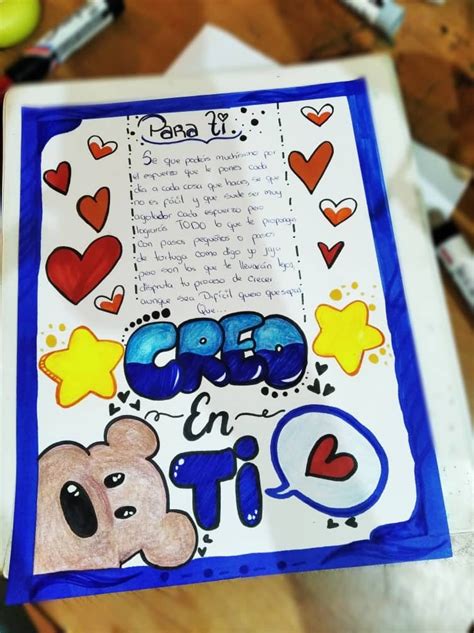 Para ti.
Se que podrás muchísimo por
el esfuerzo que le pones cada
día a cada cosa que haces, se que
no es fácil y que suele ser muy
agotador cada esfuerzo pero
lograrás TODO lo que te propongas
Con pasos pequeños o pasos
de tortuga como digo yo jaja
pero son los que te llevarán lejos,
disfruta tu proceso de crecer
aunque sea Difícil quiero que sepas
Que...
CREO
En
Ti